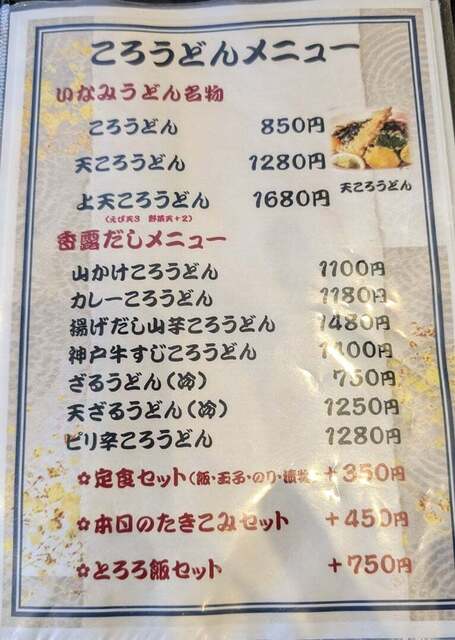 ころうどんメニュー
いなみうどん名物
ころうどん 850円
天ころうどん 1280円
上天ころうどん 1680円
(えび天3 野菜天+2)
天ころうどん
香露だしメニュー
山かけころうどん 1100円
カレーころうどん 1180円
揚げだし山芋ころうどん 1480円
神戸牛すじころうどん 1400円
ざるうどん(冷) 750円
天ざるうどん(冷) 1250円
ピリ辛ころうどん 1280円
☆定食セット(飯・玉子・のり・漬物) +350円
☆本日のたきこみセット +450円
☆とろろ飯セット +750円